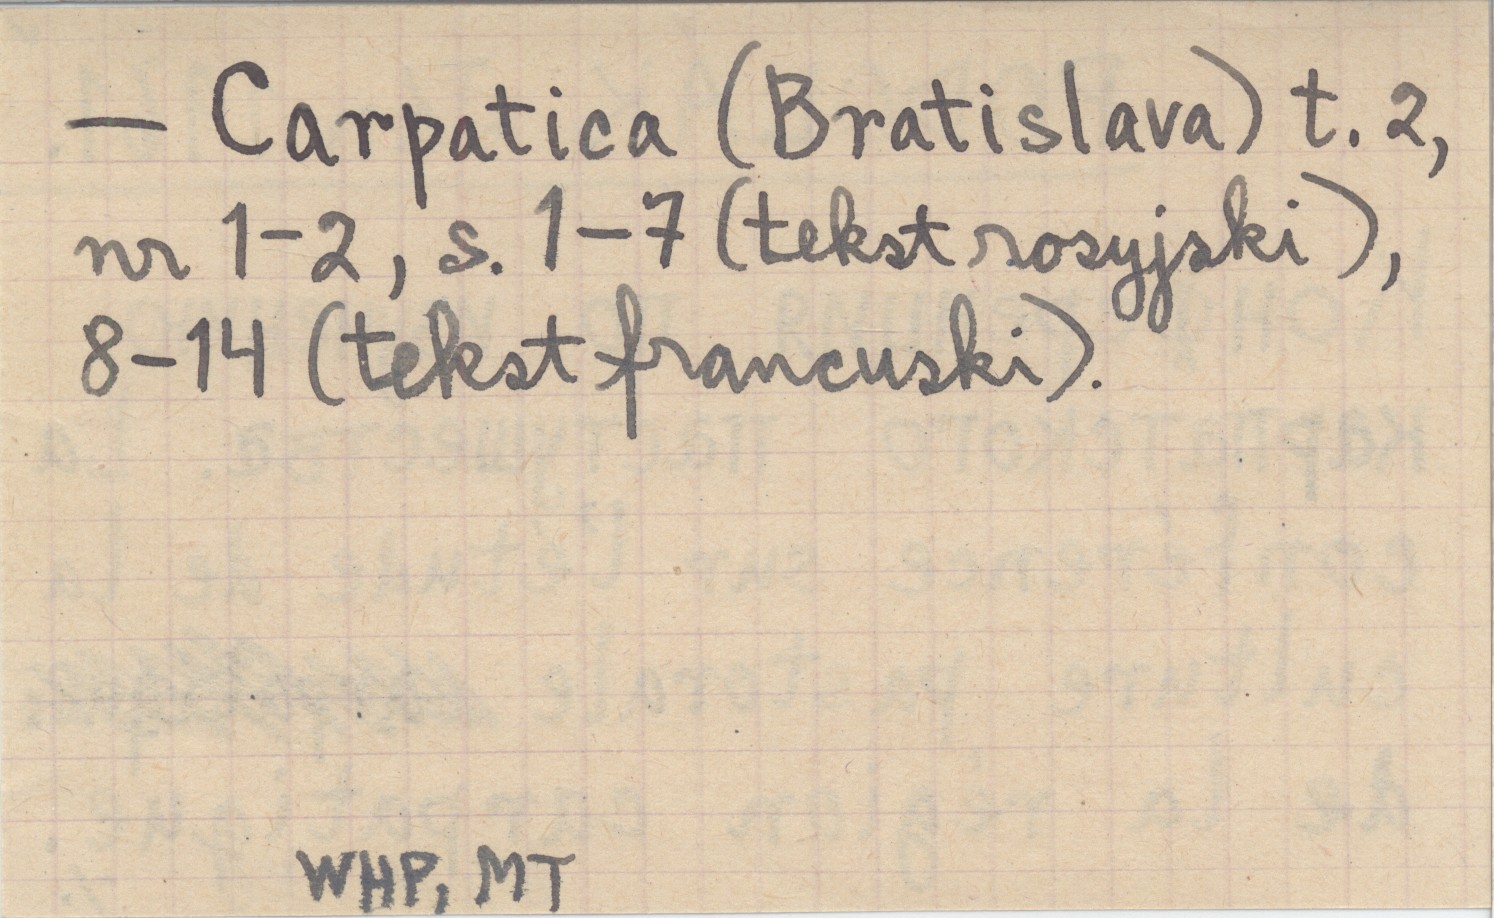 — Carpatica (Bratislava) t. 2,
nr 1-2, s. 1-7 (tekst rosyjski),
8-14 (tekst francuski).
WHP, MT